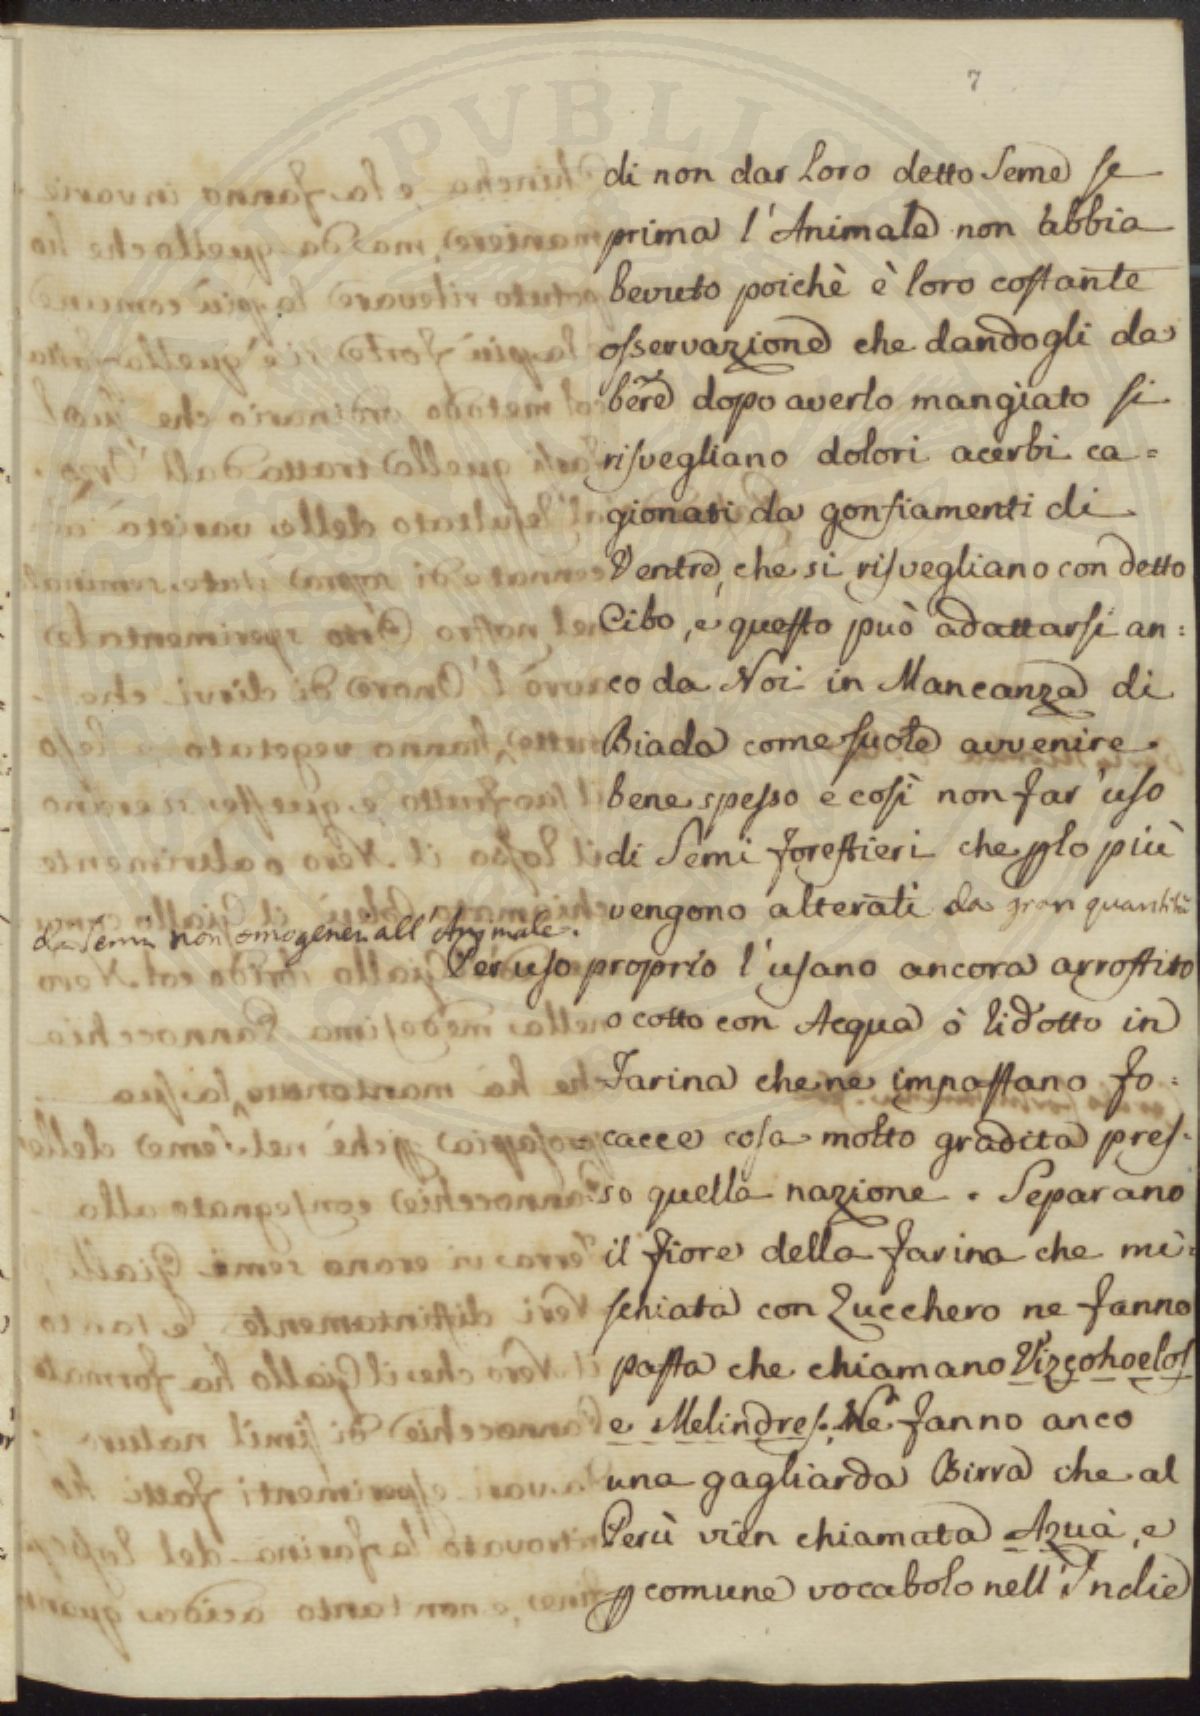 7
di non dar loro detto Seme se
prima l'Animale non abbia
bevuto poichè è loro costante
osservazione che dandogli da
bere dopo averlo mangiato si
risvegliano dolori acerbi ca=
gionati da gonfiamenti di
Ventre, che si risvegliano con detto
Cibo, e questo può adattarsi an:
co da Noi in Mancanza di
Biada come suole avvenire
bene spesso e così non far uso
di Semi forestieri che plo più
vengono alterati da gran quantità
da Semi non omogenei all'Animale.
Per uso proprio l'usano ancora arrostito
o cotto con Acqua ò ridotto in
Farina che ne impastano fo:
cacce cosa molto gradita pres:
so quella nazione. Separano
il fiore della farina che mi:
schiata con Zucchero ne fanno
pasta che chiamano Vizcohoelos
e Melindres. Ne fanno anco
una gagliarda Birra che al
Perù vien chiamata Azuà, e
p comune vocabolo nell'Indie